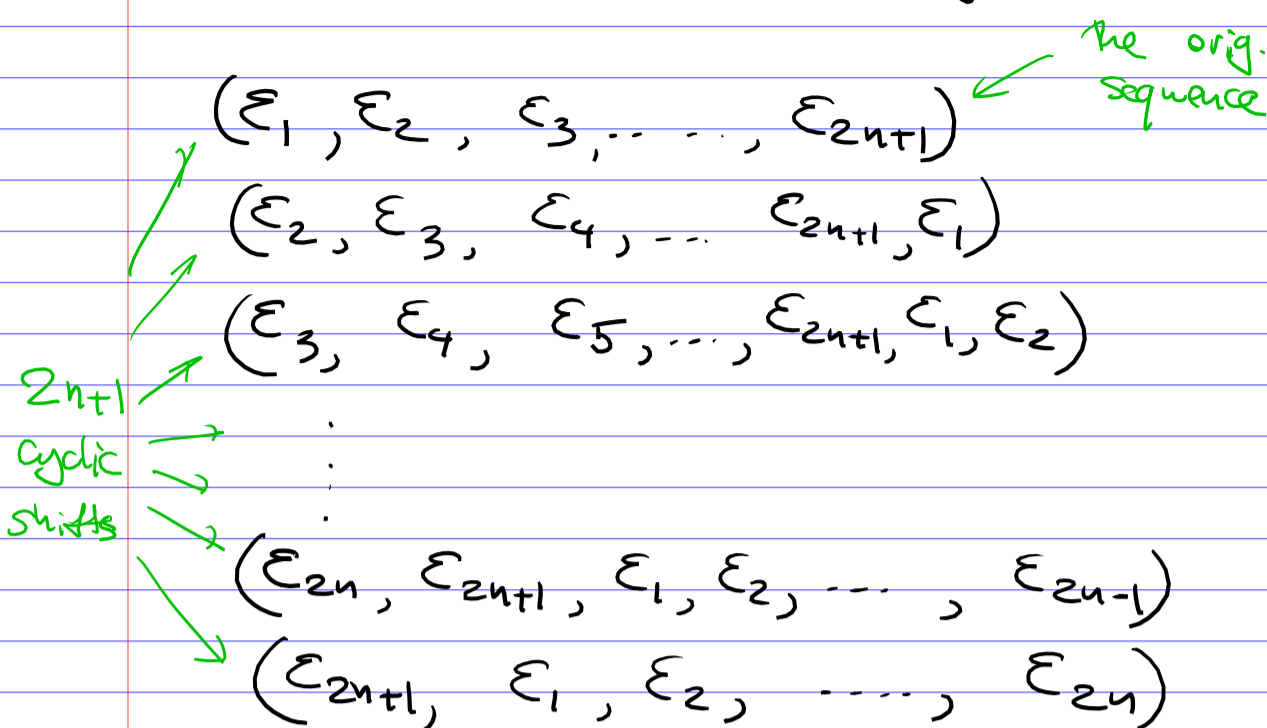 the orig.
sequence
(ε₁, ε₂, ε₃, ..., ε₂ₙ₊₁)
(ε₂, ε₃, ε₄, ... ε₂ₙ₊₁, ε₁)
(ε₃, ε₄, ε₅, ..., ε₂ₙ₊₁, ε₁, ε₂)
2n+1
cyclic
shifts
(ε₂ₙ, ε₂ₙ₊₁, ε₁, ε₂, ..., ε₂ₙ₋₁)
(ε₂ₙ₊₁, ε₁, ε₂, ...., ε₂ₙ)